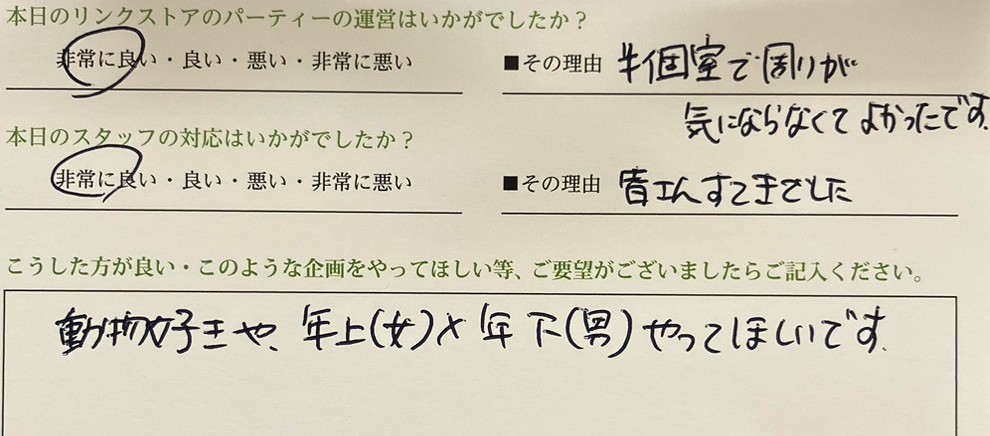 本日のリンクストアのパーティーの運営はいかがでしたか？
非常に良い・良い・悪い・非常に悪い ■その理由 半個室で周りが
気にならなくてよかったです。
本日のスタッフの対応はいかがでしたか？
非常に良い・良い・悪い・非常に悪い ■その理由 皆さんすてきでした
こうした方が良い・このような企画をやってほしい等、ご要望がございましたらご記入ください。
動物好きや、年上(女)×年下(男)やってほしいです。